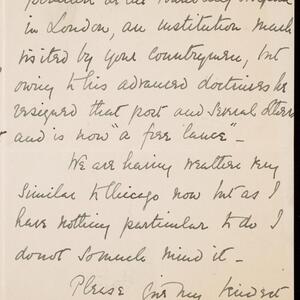 in London, an institution much
visited by your countrymen, but
owing to his advanced doctrines he
resigned that post and several others
and is now "a free lance" -
We are having weather very
similar to Chicago now but as I
have nothing particular to do I
do not so much mind it -
Please give my kindest